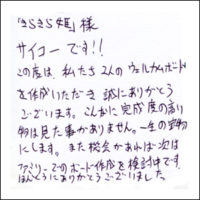 「きらきら姫」様
サイコーです!!
この度は、私たち2人のウェルカムボード
を作成いただき誠にありがとう
ございます。こんなに完成度の高い
物は見た事がありません。一生の宝物
にします。また機会があれば次は
ファミリーでのボード作成を検討中です。
ほんとうにありがとうございました。